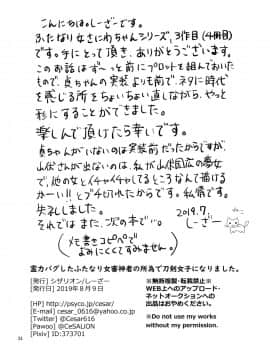 こんにちは。しーざーです。
ふたなり女さにわちゃんシリーズ、3作目(4冊目)
です。手にとって頂き、ありがとうございます。
このお話はずーっと前にプロットを組んでおいた
もので、貞ちゃんの実装よりも前で、ネタに時代
を感じる所をちょいちょい直しながら、やっと
形にすることができました。
楽しんで頂けたら幸いです。
貞ちゃんがいないのは実装前だったからですが、
山伏さんが出ないのは、私が山伏国広の夢女
で、他の女とイチャイチャしてるところなんて描ける
かーい!!とブチ切れたからです。私情です。
失礼しました。
それではまた、次の本で…。
2019.7.
しーざー
(メモ書きコピペで
よみにくくてすみません。)
霊力バグしたふたなり女審神者の所為で刀剣女子になりました。
[発行] シザリオン/しーざー
[発行日] 2019年8月9日
[HP] http://psyco.jp/cesar/
[E-mail] cesar_0616@yahoo.co.jp
[Twitter] @Cesar616
[Pawoo] @CeSALiON
[Pixiv] ID:373701
※無断複製・転載禁止※
WEB上へのアップロード・
ネットオークションへの
出品はおやめください。
※Do not use my works
without my permission.